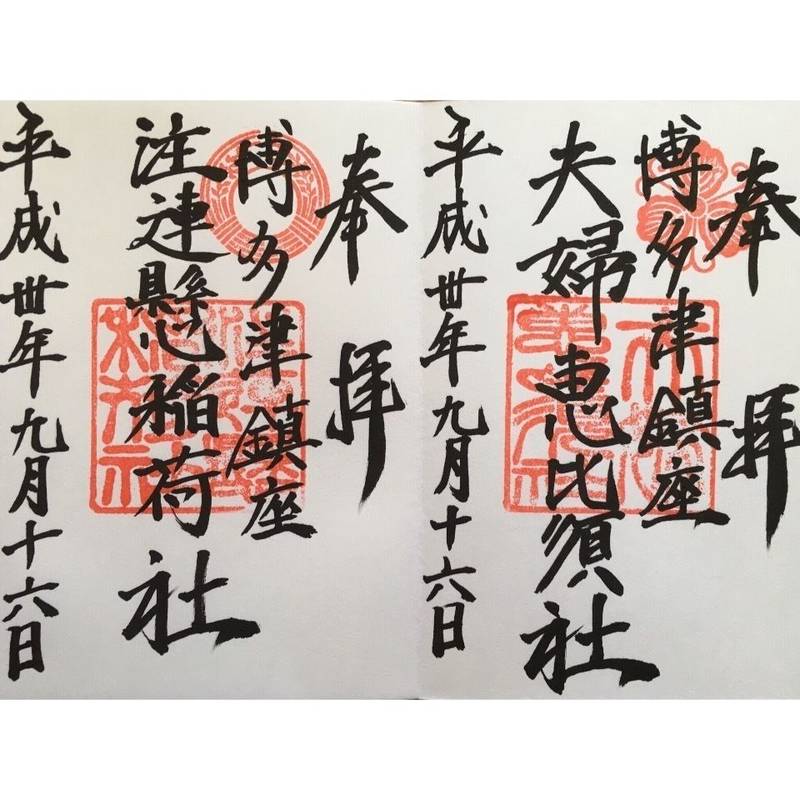 奉拝
博多津鎮座
夫婦恵比須社
平成丗年九月十六日
奉拝
博多津鎮座
注連懸稲荷社
平成丗年九月十六日